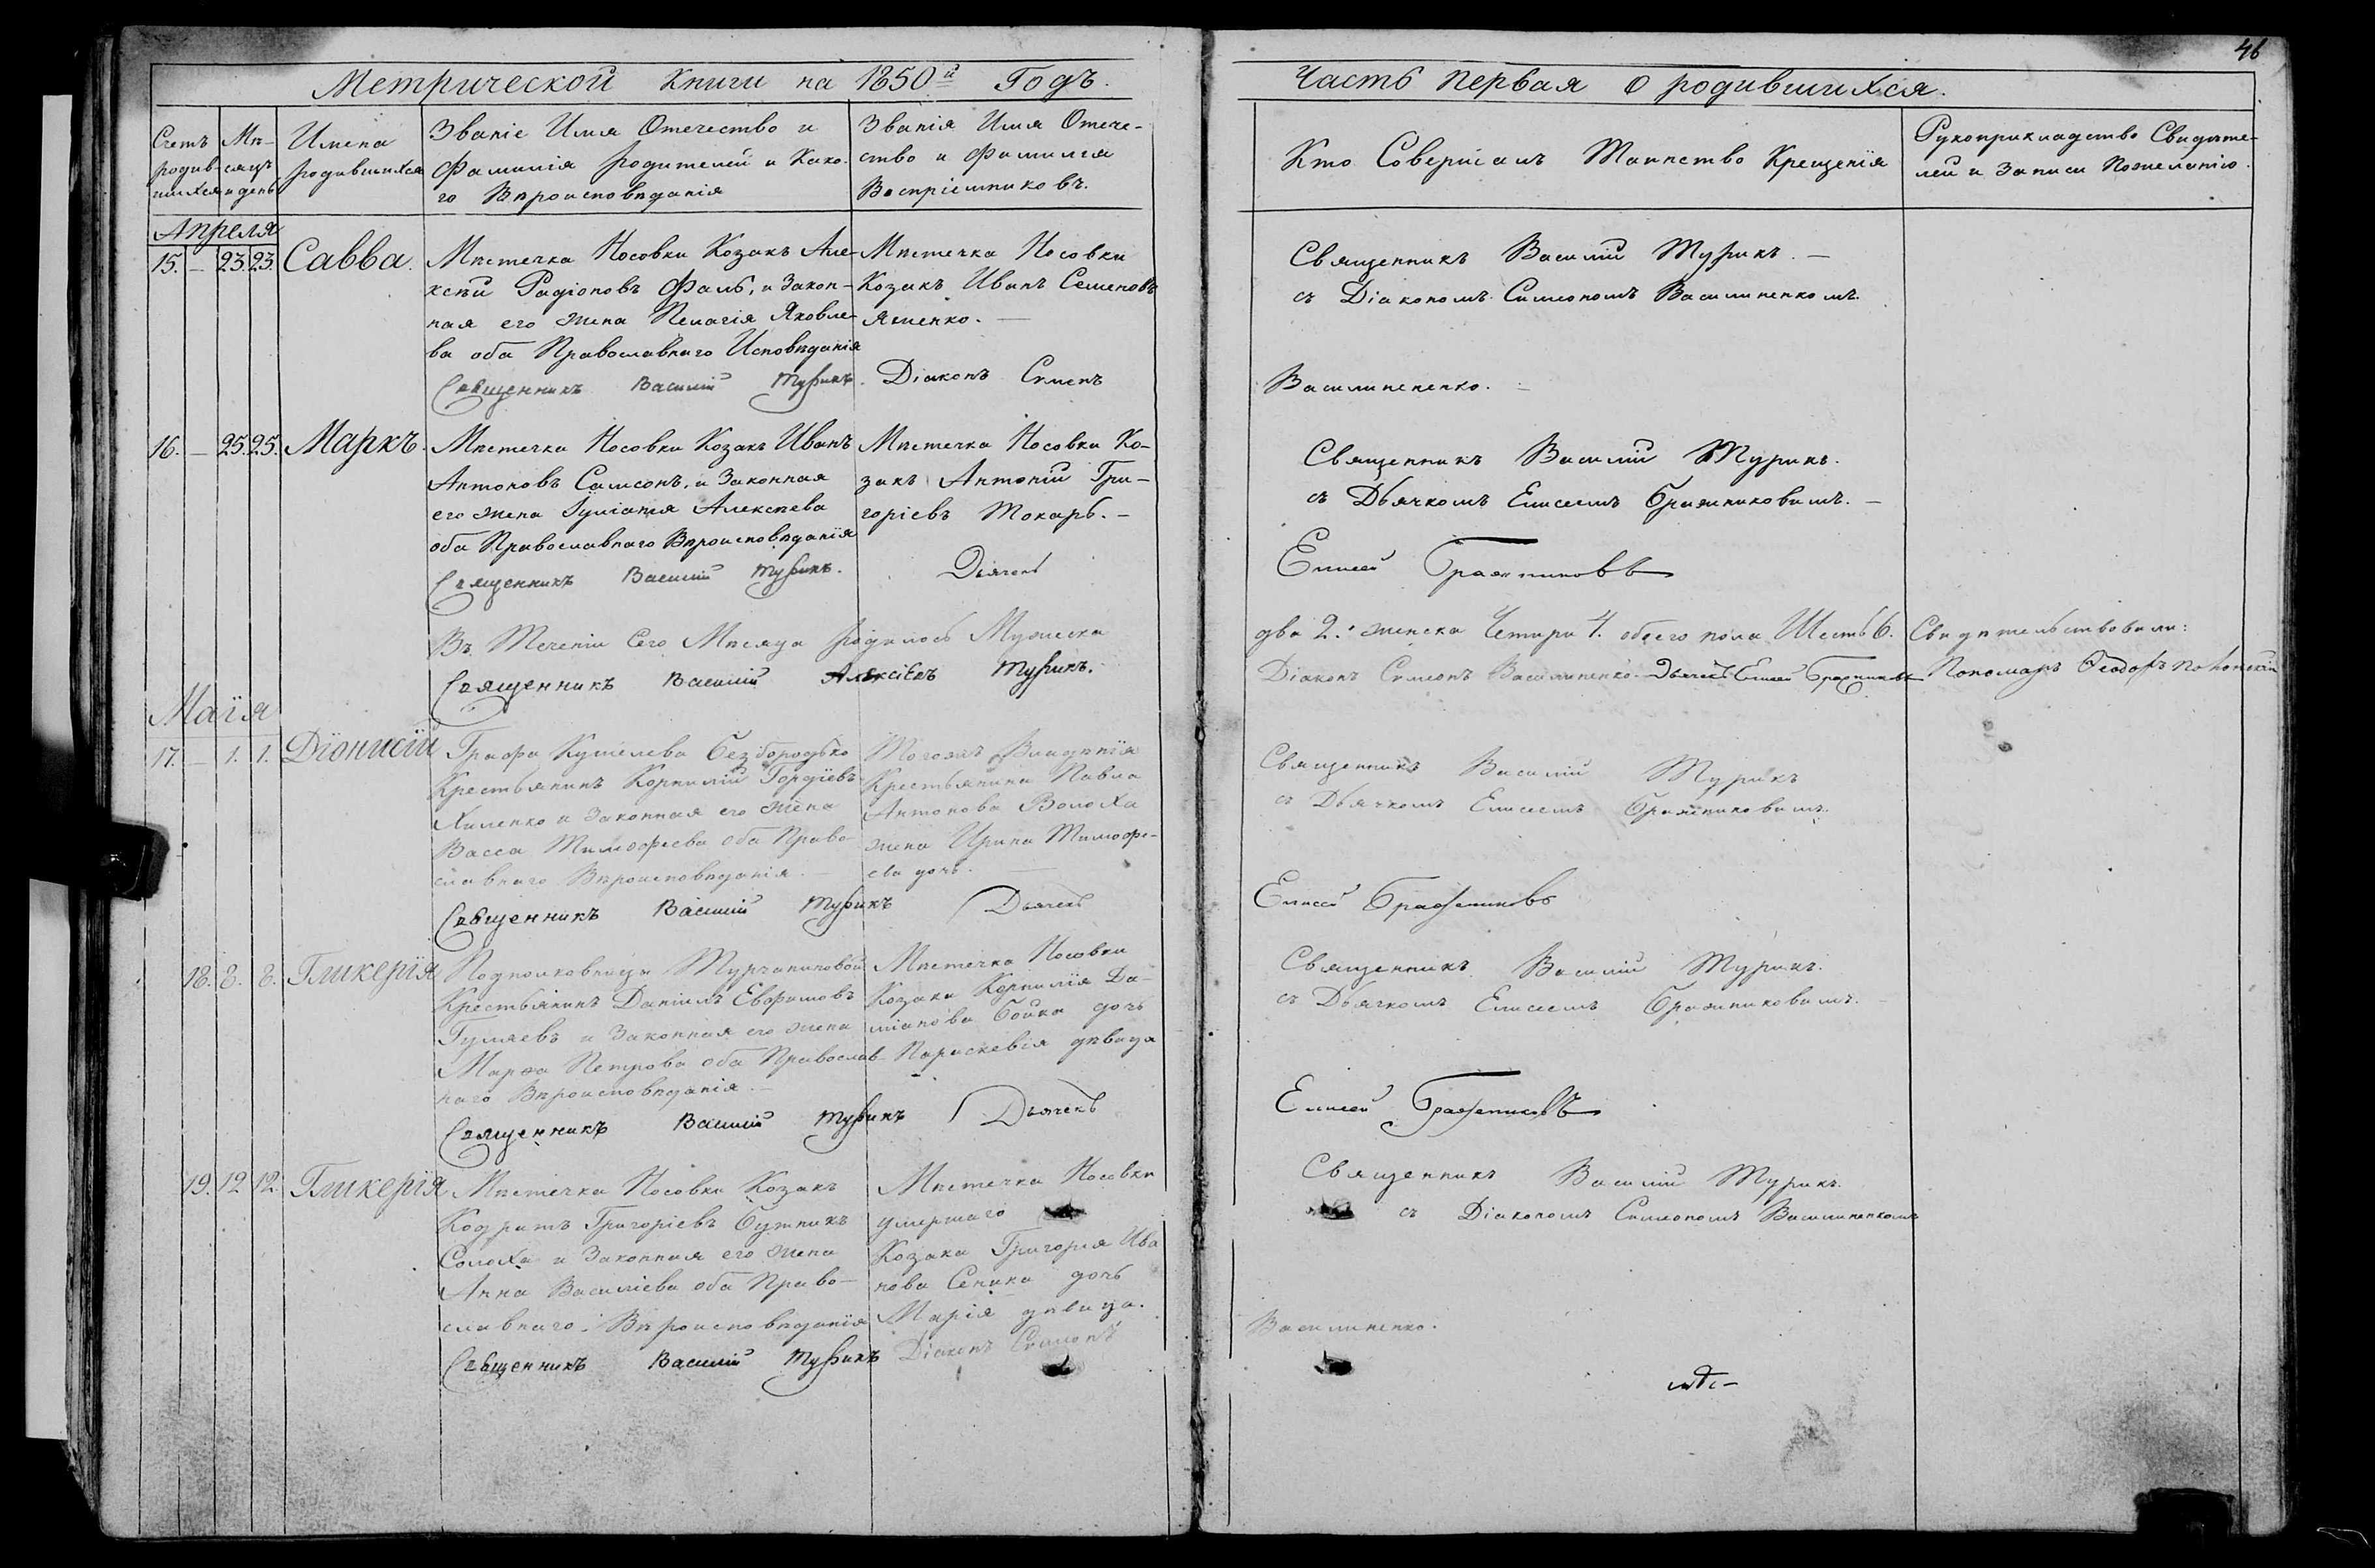 46
Метрической Книги на 1850й Годъ.
Часть Первая о родившихся.
Счетъ родив-шихся
Мѣ-сяцъ и день
Имена родившихся
Званіе Имя Отечество и
Фамилія родителей и Како-
го Вѣроисповѣданія
Званія Имя Отече-
ство и Фамилія
Воспріемниковъ.
Кто Совершалъ Таинство Крещенія
Рукоприкладство Свидѣте-
лей и Записи Пожеланію.
Апреля
15. – 23. 23. Савва.
Мѣстечка Носовки Козакъ Але-
ксѣй Радіоновъ Фаль, и Закон-
ная его жена Пелагія Яковле-
ва оба Православнаго Исповѣданія
Мѣстечка Носовки
Козакъ Иванъ Семеновъ
Яшенко. –
Священникъ Василій Турикъ. –
съ Діакономъ Симеономъ Василиненкомъ.
Священникъ Василій Турикъ. Діаконъ Симеонъ
Василиненко. –
16. – 25. 25. Маркъ.
Мѣстечка Носовки Козакъ Иванъ
Антоновъ Самсонъ, и Законная
его жена Іуліанія Алексѣева
оба Православнаго Вѣроисповѣданія
Мѣстечка Носовки Ко-
закъ Антоній Гри-
горіевъ Токарь. –
Священникъ Василій Турикъ.
съ Дьячкомъ Елисеемъ Бражниковымъ. –
Священникъ Василій Турикъ. Дьячекъ
Елисей Бражниковъ
Въ Теченіи Сего Мѣсяца родилось Мужеска
два 2. женска Четыри 4. обоего пола Шесть 6. Свидѣтельствовали:
Священникъ Василій Алексіевъ Турикъ.
Діаконъ Симеонъ Василиненко. Дьячекъ Елисей Бражниковъ Пономарь Ѳеодоръ
Маія
17. – 1. 1. Діонисій
Графа Кушелева Безбородько
Крестьянинъ Корнилій Гордіевъ
Хиленко и Законная его жена
Васса Тимофѣева оба Право-
славнаго Вѣроисповѣданія. –
Тогожъ Владѣнія
Крестьянина Павла
Антонова Волоха
жена Ирина Тимофѣ-
ева дочь. –
Священникъ Василій Турикъ
съ Дьячкомъ Елисеемъ Бражниковымъ.
Священникъ Василій Турикъ Дьячекъ
Елисей Бражниковъ
18. 8. 8. Гликерія
Подполковницы Турчаниновой
Крестьянинъ Даніилъ Евфимовъ
Гуляевъ и Законная его жена
Марѳа Петрова оба Православ-
наго Вѣроисповѣданія. –
Мѣстечка Носовки
Козака Корнилія Да-
міанова Бойка дочь
Параскевія дѣвица
Священникъ Василій Турикъ.
съ Дьячкомъ Елисеемъ Бражниковымъ. –
Священникъ Василій Турикъ Дьячекъ
Елисей Бражниковъ
19. 12. 12. Гликерія
Мѣстечка Носовки Козакъ
Кодратъ Григоріевъ Бутникъ
Солоха и Законная его жена
Анна Василіева оба Право-
славнаго Вѣроисповѣданія
Мѣстечка Носовки
умершаго
Козака Григорія Ива
нова Сепика дочь
Марія дѣвица.
Священникъ Василій Турикъ.
съ Діакономъ Симеономъ Василиненкомъ
Священникъ Василій Турикъ Діаконъ Симеонъ
Василиненко.